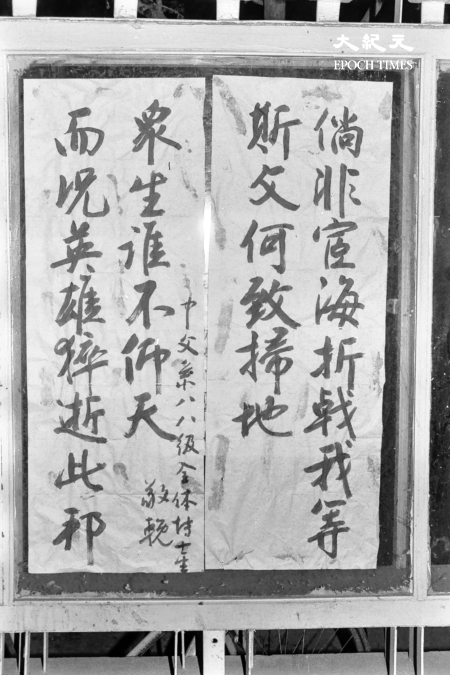 大紀元
EPOCH TIMES
倘非宦海折戟我等
斯文何致掃地
而况英雄猝逝此邦
衆生谁不仰天
中文系八八级全体博士生
敬輓